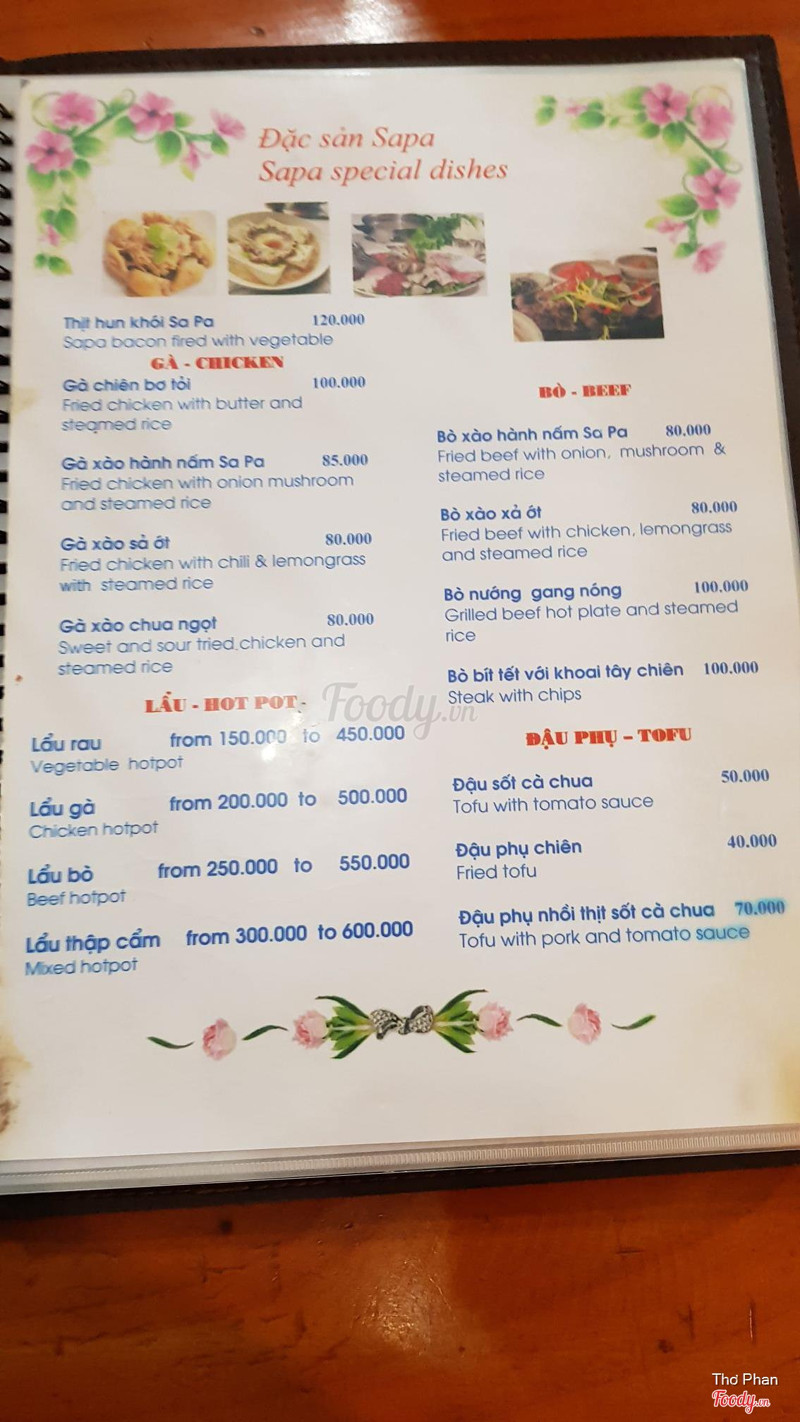 Đặc sản Sapa
Sapa special dishes
Thịt hun khói Sa Pa 120.000
Sapa bacon fired with vegetable
GÀ - CHICKEN
Gà chiên bơ tỏi 100.000
Fried chicken with butter and
steamed rice
Gà xào hành nấm Sa Pa 85.000
Fried chicken with onion mushroom
and steamed rice
Gà xào sả ớt 80.000
Fried chicken with chili & lemongrass
with steamed rice
Gà xào chua ngọt 80.000
Sweet and sour tried chicken and
steamed rice
LẨU - HOT POT-
Lẩu rau from 150.000 to 450.000
Vegetable hotpot
Lẩu gà from 200.000 to 500.000
Chicken hotpot
Lẩu bò from 250.000 to 550.000
Beef hotpot
Lẩu thập cẩm from 300.000 to 600.000
Mixed hotpot
BÒ - BEEF
Bò xào hành nấm Sa Pa 80.000
Fried beef with onion, mushroom &
steamed rice
Bò xào xả ớt 80.000
Fried beef with chicken, lemongrass
and steamed rice
Bò nướng gang nóng 100.000
Grilled beef hot plate and steamed
rice
Bò bít tết với khoai tây chiên 100.000
Steak with chips
ĐẬU PHỤ - TOFU
Đậu sốt cà chua 50.000
Tofu with tomato sauce
Đậu phụ chiên 40.000
Fried tofu
Đậu phụ nhồi thịt sốt cà chua 70.000
Tofu with pork and tomato sauce
Foody.vn
Thơ Phan
Foody.vn